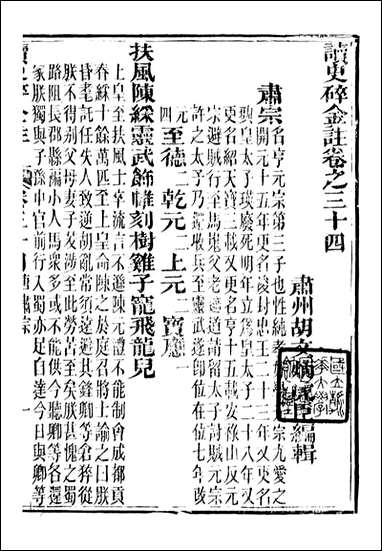 讀史碎金註卷之三十四
肅州胡文炳 編輯
肅宗 名亨元宗第三子也性純孝 宗九愛之
開元十五年更名浚封忠王二十三年又更名
璵皇太子瑛廢死明年立為皇太子二十八年又
更名紹天寶三載又更名亨十五載安祿山反元
宗避賊行至馬嵬父老遮道請留太子討賊元宗
許之太子乃還收兵至靈武遂即位在位七年改
四 至德二 乾元二 上元二 寶應一
扶風陳綵靈武飾帷刻樹雞子寵飛龍兒
上皇至扶風士卒流言不遜陳元禮不能制會成都貢
春綵十餘萬匹至上皇命陳之於庭召將士諭之曰朕
昏耄託任失人致逆朝亂常須遠避其鋒卿等倉猝從
朕不得別父母妻子茇涉至此勞苦至矣朕甚愧之蜀
路阻長郡縣褊小人馬眾多或不能供今聽卿等各還
家朕獨與子孫中官前行入蜀亦足自達今日與卿等
讀史碎金註 卷三十四 唐肅宗 一